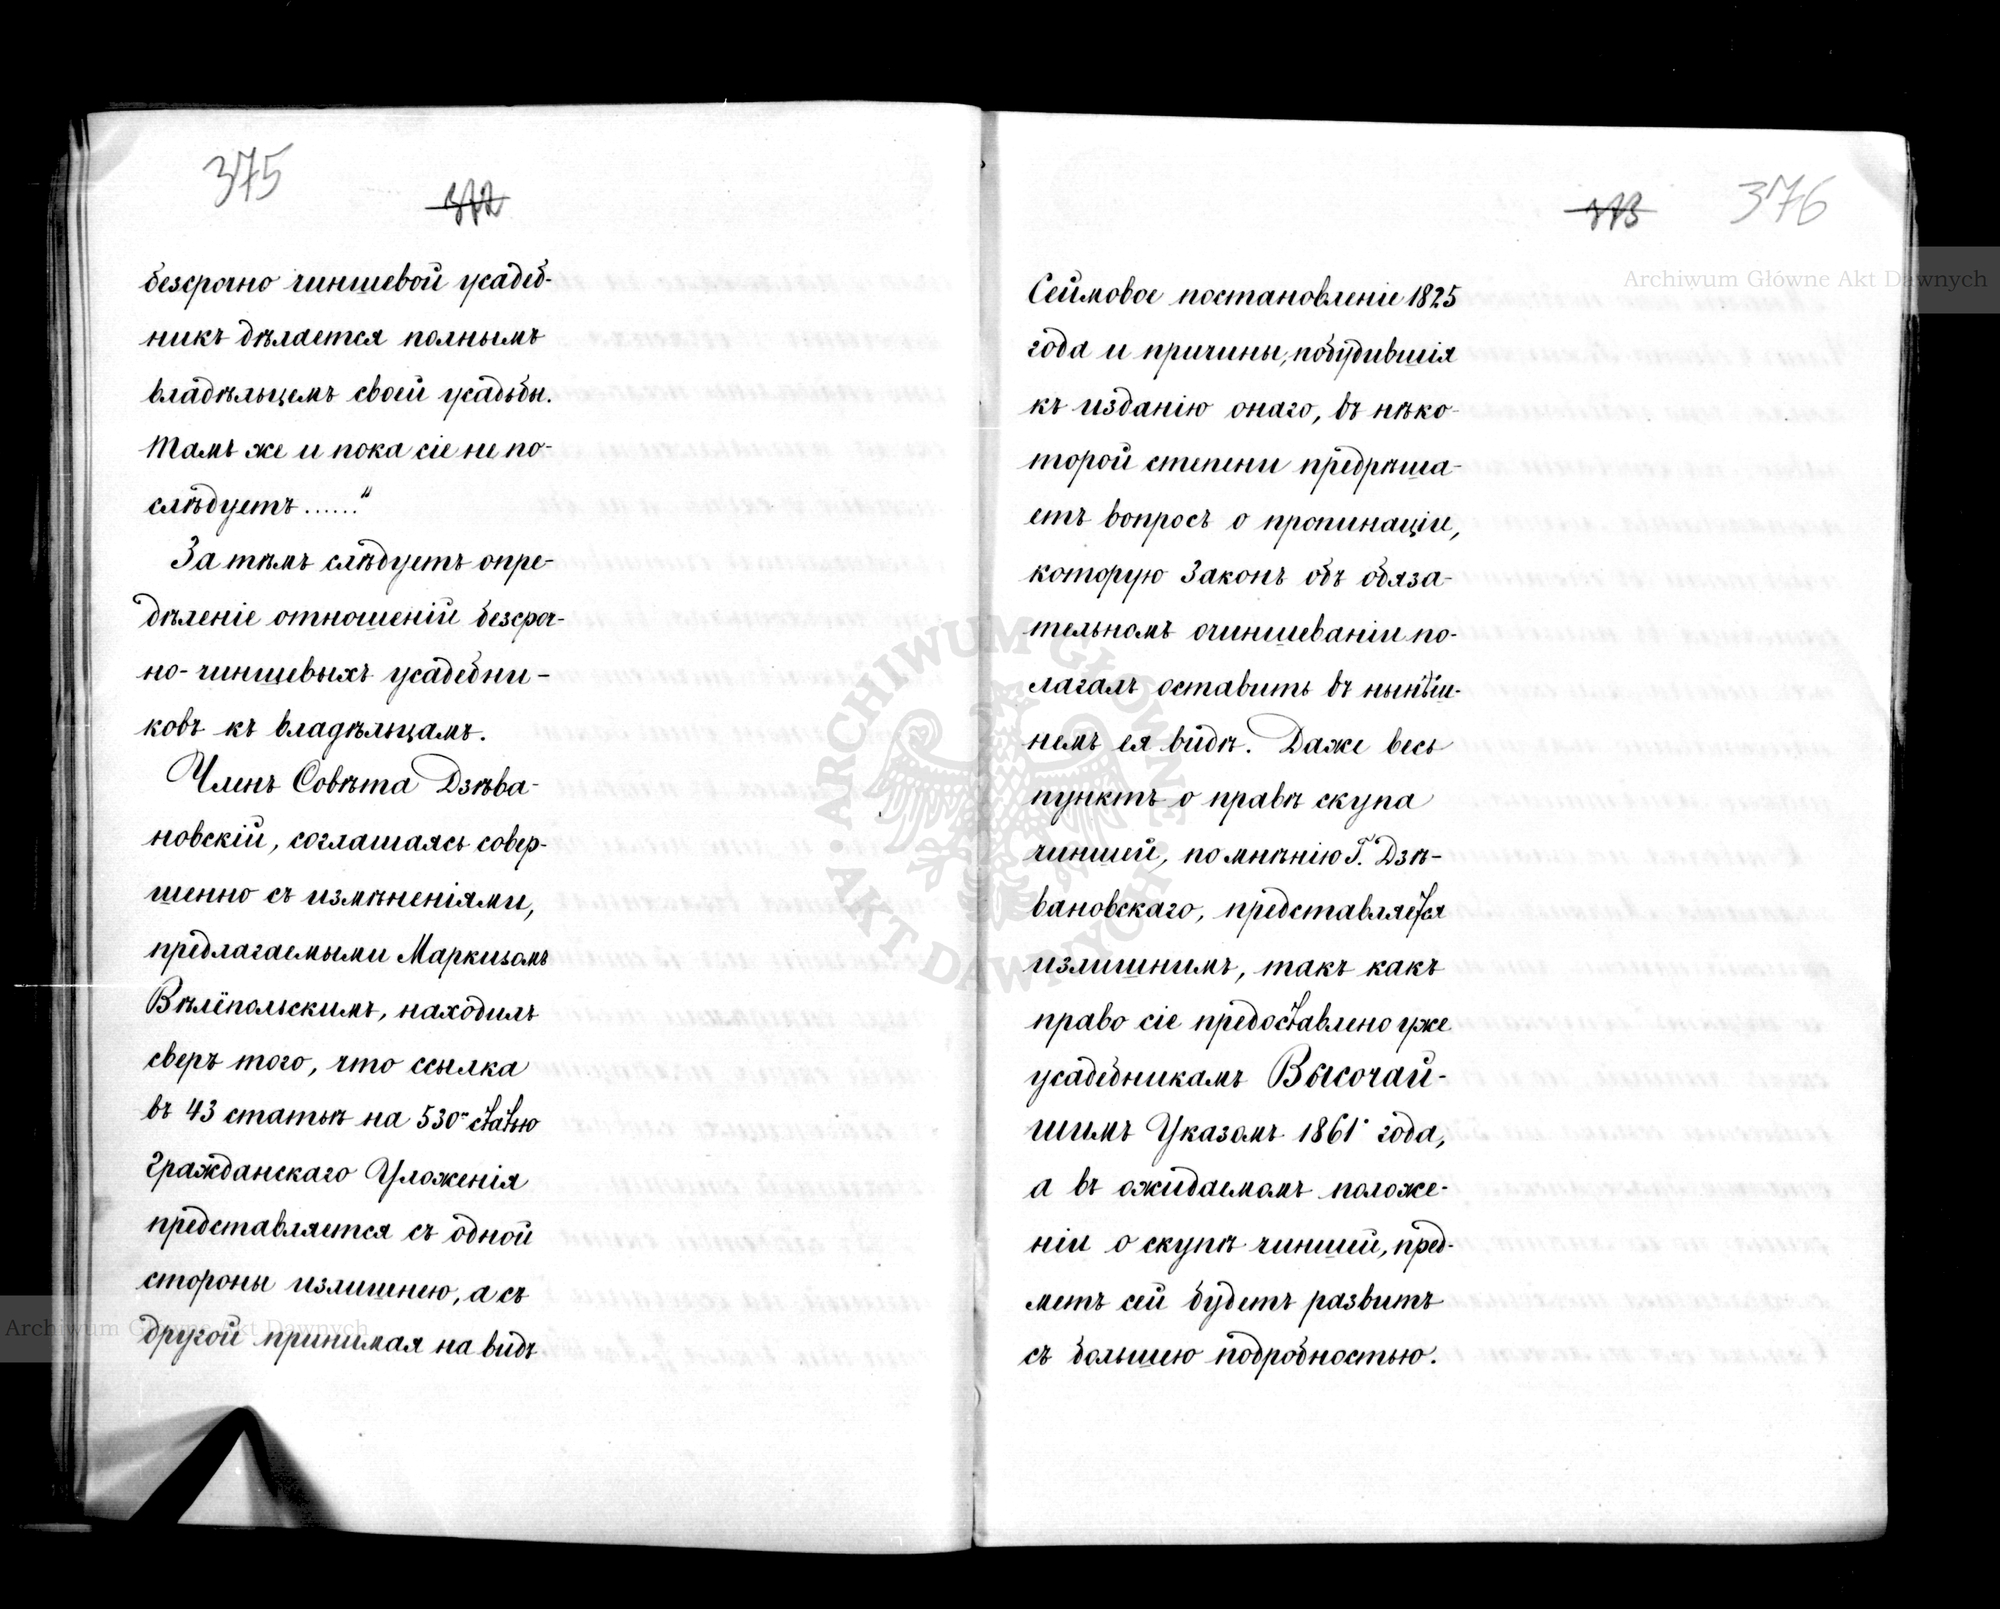 375
372
безсрочно чиншевой усадеб-
никъ дѣлается полнымъ
владѣльцемъ своей усадьбы.
Тамъ же и пока сіе не по-
слѣдуетъ......"
За тѣмъ слѣдуетъ опре-
дѣленіе отношеній безсроч-
но-чиншевыхъ усадебни-
ковъ къ владѣльцамъ.
Членъ Совѣта Дзѣва-
новскій, соглашаясь совер-
шенно съ измѣненіями,
предлагаемыми Маркизомъ
Вѣлёпольскимъ, находилъ
сверъ того, что ссылка
въ 43 статьѣ на 530ю статью
Гражданскаго Уложенія
представляется съ одной
стороны излишнею, а съ
другой принимая на видъ
373
376
Сеймовое постановленіе 1825
года и причины, побудившія
къ изданію онаго, въ нѣко-
торой степени предрѣша-
етъ вопросъ о пропинаціи,
которую Законъ объ обяза-
тельномъ очиншеваніи по-
лагалъ оставить въ нынѣш-
немъ ея видѣ. Даже весь
пунктъ о правѣ скупа
чиншей, по мнѣнію Г. Дзѣ-
вановскаго, представляется
излишнимъ, такъ какъ
право сіе предоставлено уже
усадебникамъ Высочай-
шимъ Указомъ 1861 года,
а въ ожидаемомъ положе-
ніи о скупѣ чиншей, пред-
метъ сей будетъ развитъ
съ большею подробностью.
Archiwum Główne Akt Dawnych
ARCHIWUM GŁÓWNE AKT DAWNYCH
Archiwum Główne Akt Dawnych